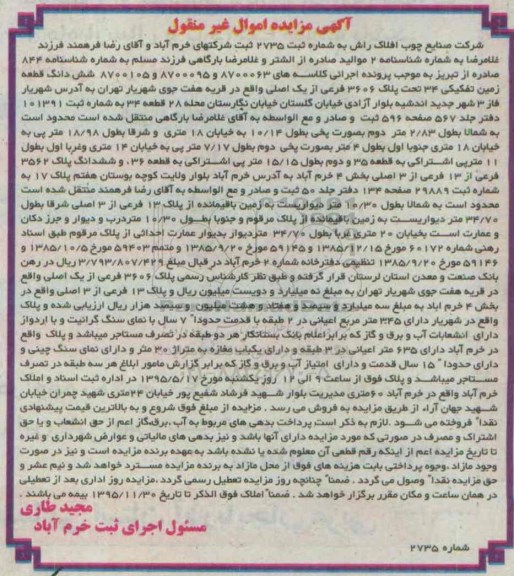 آگهی مزایده اموال غیر منقول
شرکت صنایع چوب افلاک راش به شماره ثبت ۲۷۳۵ ثبت شرکتهای خرم آباد و آقای رضا فرهمند فرزند
غلامرضا به شماره شناسنامه ۲ موالید صادره از الشتر و غلامرضا بارگاهی فرزند مسلم به شماره شناسنامه ۸۴۴
صادره از تبریز به موجب پرونده اجرائی کلاسه های ۸۷۰۰۰۶۳ و ۸۷۰۰۰۹۵ و ۸۷۰۰۱۰۵ شش دانگ قطعه
زمین تفکیکی ۳۴ تحت پلاک ۳۶۰۶ فرعی از یک اصلی واقع در قریه هفت جوی شهریار تهران به آدرس شهریار
فاز ۳ شهر جدید اندشیه بلوار آزادی خیابان گلستان خیابان نگارستان محله ۲۸ قطعه ۳۴ به شماره ثبت ۱۰۱۳۹۱
دفتر جلد ۵۶۷ صفحه ۵۹۶ ثبت و صادر و مع الواسطه به آقای غلامرضا بارگاهی منتقل شده است محدود است
به شمالا بطول ۲/۸۳ متر دوم بصورت پخی بطول ۱۰/۱۴ به خیابان ۱۸ متری و شرقا بطول ۱۸/۹۸ متر پی به
خیابان ۱۸ متری جنوبا اول بطول ۴ متر بصورت پخی دوم بطول ۷/۱۷ متر پی به خیابان ۱۴ متری وغربا اول بطول
۱۱ مترپی اشتراکی به قطعه ۳۵ و دوم بطول ۱۵/۱۵ متر پی اشتراکی به قطعه ۳۶، و ششدانگ پلاک ۳۵۶۲
فرعی از ۱۳ فرعی از ۳ اصلی بخش ۴ خرم آباد به آدرس خرم آباد بلوار ولایت کوچه بوستان هفتم پلاک ۱۷ به
شماره ثبت ۲۹۸۸۹ صفحه ۱۳۴ دفتر جلد ۵۰ ثبت و صادر و مع الواسطه به آقای رضا فرهمند منتقل شده است
محدود است به شمالا بطول ۱۰/۳۰ متر دیواریست به زمین باقیمانده از پلاک ۱۳ فرعی از ۳ اصلی شرقا بطول
۳۴/۷۰ متر دیواریست به زمین باقیمانده از پلاک مرقوم و جنوبا بطول ۱۰/۳۰ متردرب و دیوار و جرز دکان
و عمارت است بخیابان ۲۰ متری غربا بطول ۳۴/۷۰ متردیوار بدیوار عمارت احداثی از پلاک مرقوم طبق اسناد
رهنی شماره ۶۰۱۷۲ مورخ ۱۳۸۵/۱۲/۱۵ و ۵۹۱۴۵ مورخ ۱۳۸۵/۹/۲۰ و متمم ۵۹۴۰۳ مورخ ۱۳۸۵/۱۰/۵ و
۵۹۱۴۶ مورخ ۱۳۸۵/۹/۲۰ تنظیمی دفترخانه شماره ۲ خرم آباد در قبال مبلغ ۳/۷۹۳/۸۰۷/۴۲۹ ریال در رهن
بانک صنعت و معدن استان لرستان قرار گرفته و طبق نظر کارشناس رسمی پلاک ۳۶۰۶ فرعی از یک اصلی واقع
در قریه هفت جوی شهریار تهران به مبلغ نه میلیارد و دویست میلیون ریال و پلاک ۱۳ فرعی از ۳ اصلی واقع در
بخش ۴ خرم اباد به مبلغ سه میلیارد و سیصد و هفتاد و هشت میلیون و سیصد هزار ریال ارزیابی شده و پلاک
واقع در شهریار دارای ۳۴۵ متر مربع اعیانی در ۲ طبقه با قدمت حدوداً ۷ سال با نمای سنگ گرانیت و با اردواز
دارای انشعابات آب و برق و گاز که برابر اعلام بانک بستانکار هر دو طبقه در تصرف مستاجر میباشد و پلاک واقع
در خرم آباد دارای ۶۳۵ متر اعیانی در ۳ طبقه و دارای یکباب مغازه به متراژ ۳۰ متر و دارای نمای سنگ چینی و
دارای حدودا ۱۵ سال قدمت و دارای امتیاز آب و برق و گاز که برابر گزارش مامور ابلاغ هر سه طبقه در تصرف
مستاجر میباشد و پلاک فوق از ساعت ۹ الی ۱۲ روز یکشنبه مورخ ۱۳۹۵/۵/۱۷ در اداره ثبت اسناد و املاک
خرم آباد واقع در خرم آباد ۶۰متری مدیریت بلوار شهید فرشاد شفیع پور خیابان ۲۴متری شهید چمران خیابان
شهید جهان آراء از طریق مزایده به فروش می رسد . مزایده از مبلغ فوق شروع و به بالاترین قیمت پیشنهادی
نقداً فروخته می شود .لازم به ذکر است پرداخت بدهی های مربوط به آب ،برق،گاز اعم از حق انشعاب و یا حق
اشتراک و مصرف در صورتی که مورد مزایده دارای آنها باشد و نیز بدهی های مالیاتی و عوارض شهرداری و غیره
تا تاریخ مزایده اعم از اینکه رقم قطعی آن معلوم شده یا نشده باشد به عهده برنده مزایده است و نیز در صورت
وجود مازاد ،وجوه پرداختی بابت هزینه های فوق از محل مازاد به برنده مزایده مسترد خواهد شد و نیم عشر و
حق مزایده نقداً وصول می گردد . ضمناً چنانچه روز مزایده تعطیل رسمی گردد .مزایده روز اداری بعد از تعطیلی
در همان ساعت و مکان مقرر برگزار خواهد شد . ضمناً املاک فوق الذکر تا تاریخ ۱۳۹۵/۱۱/۳۰ بیمه می باشند .
مجید طاری
مسئول اجرای ثبت خرم آباد
شماره ۲۷۳۵